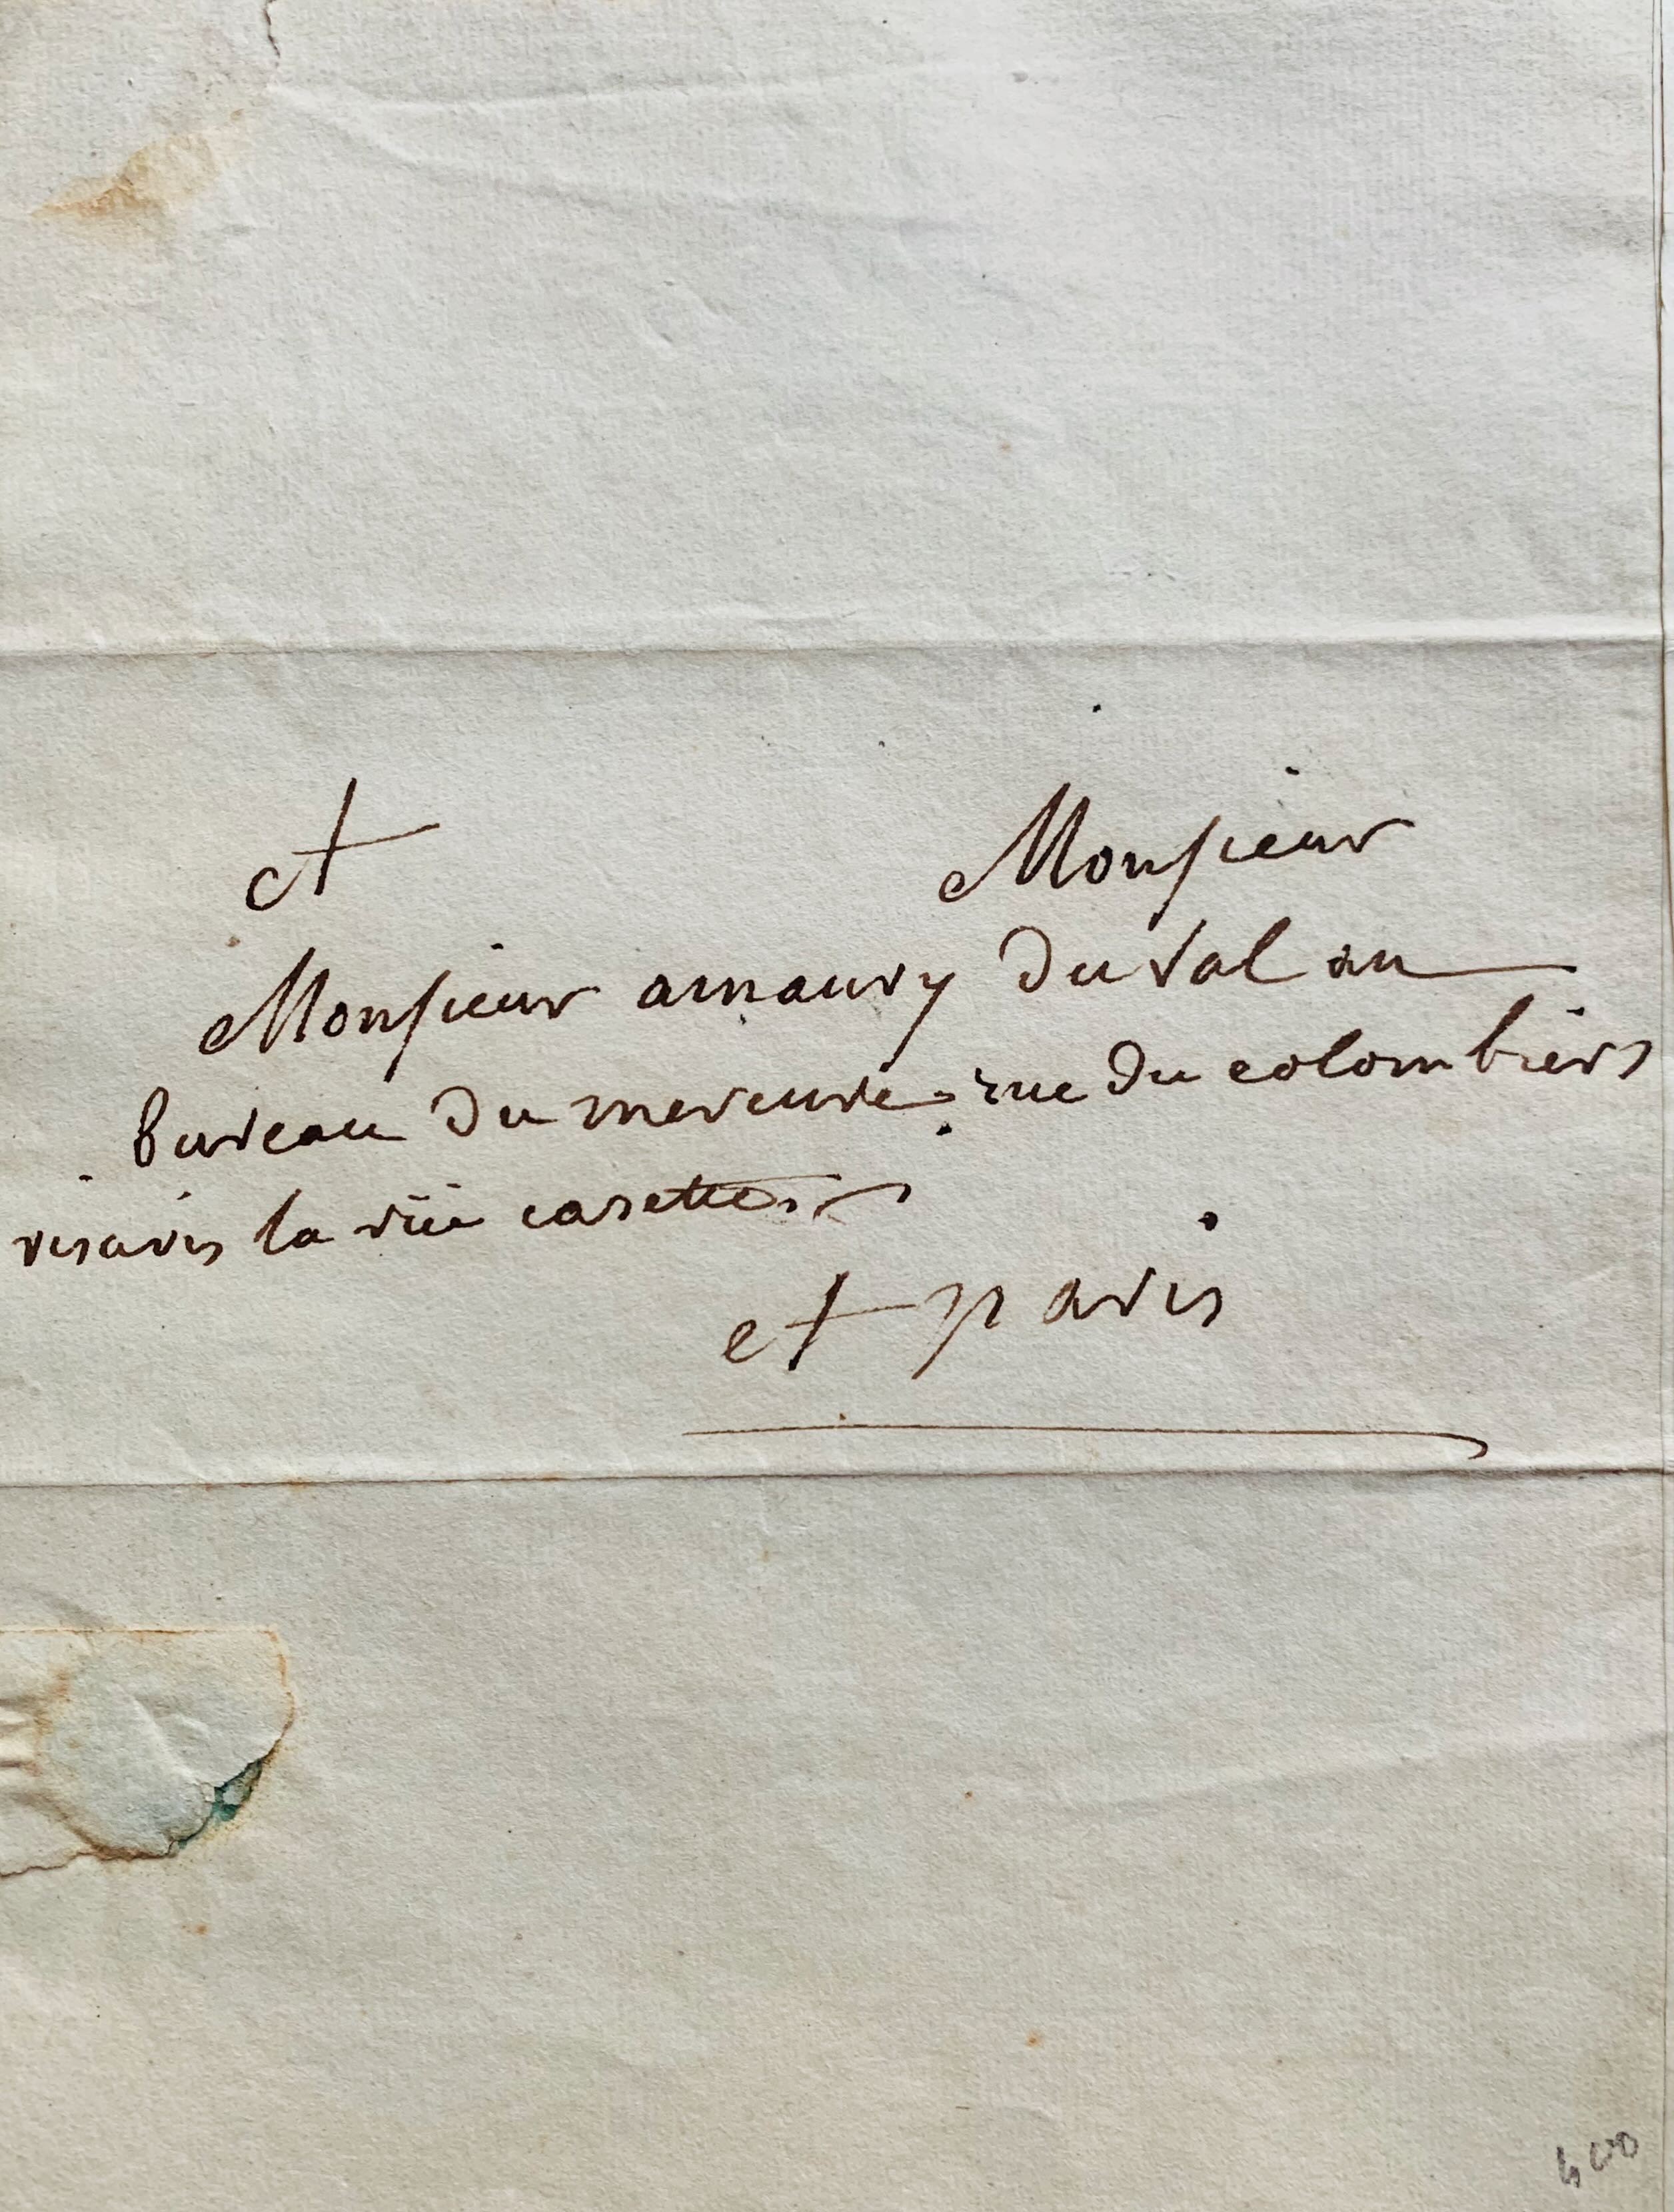 A Monsieur
Monsieur amaury duval au
bureau du mercure rue du colombiers
visavis la rüe casette
et paris
400